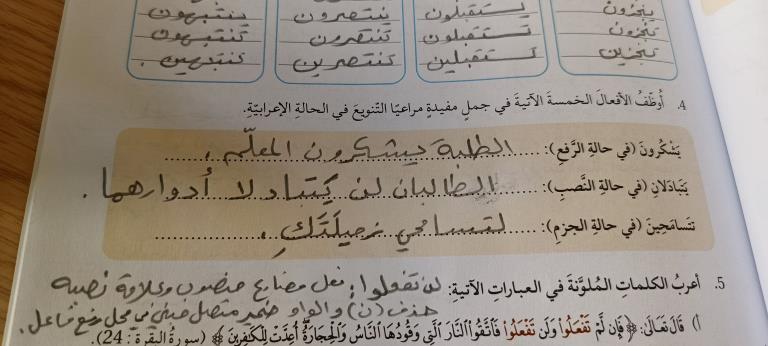 ينجزون يستقبلون ينتصرون ينتبهون
تنجزون تستقبلون تنتصرون تنتبهون
تنجزين تستقبلين تنتصرين تنتبهين.
4. أُوظّفُ الأفعالَ الخمسةَ الآتيةَ في جملٍ مفيدةٍ مراعيًا التّنويعَ في الحالةِ الإعرابيّةِ.
يَشْكُرونَ (في حالةِ الرَّفعِ): الطلبة يشكرون المعلّم.
يَتَبادَلانِ (في حالةِ النَّصبِ): الطالبان لن يتبادلا أدوارهما.
تتَسامَحِينَ (في حالةِ الجزمِ): لتتسامحي زميلَتَكِ.
5. أعربُ الكلماتِ المُلوَّنةَ في العباراتِ الآتيةِ: لن تفعلوا: فعل مضارع منصوب وعلامة نصبه
حذف (ن) والواو ضمير متصل مبني في محل رفع فاعل.
أ) قَالَ تَعَالَى: ﴿فَإِن لَّمْ تَفْعَلُوا وَلَن تَفْعَلُوا فَاتَّقُوا النَّارَ الَّتِي وَقُودُهَا النَّاسُ وَالْحِجَارَةُ أُعِدَّتْ لِلْكَافِرِينَ﴾ (سورةُ البقرةِ: 24).